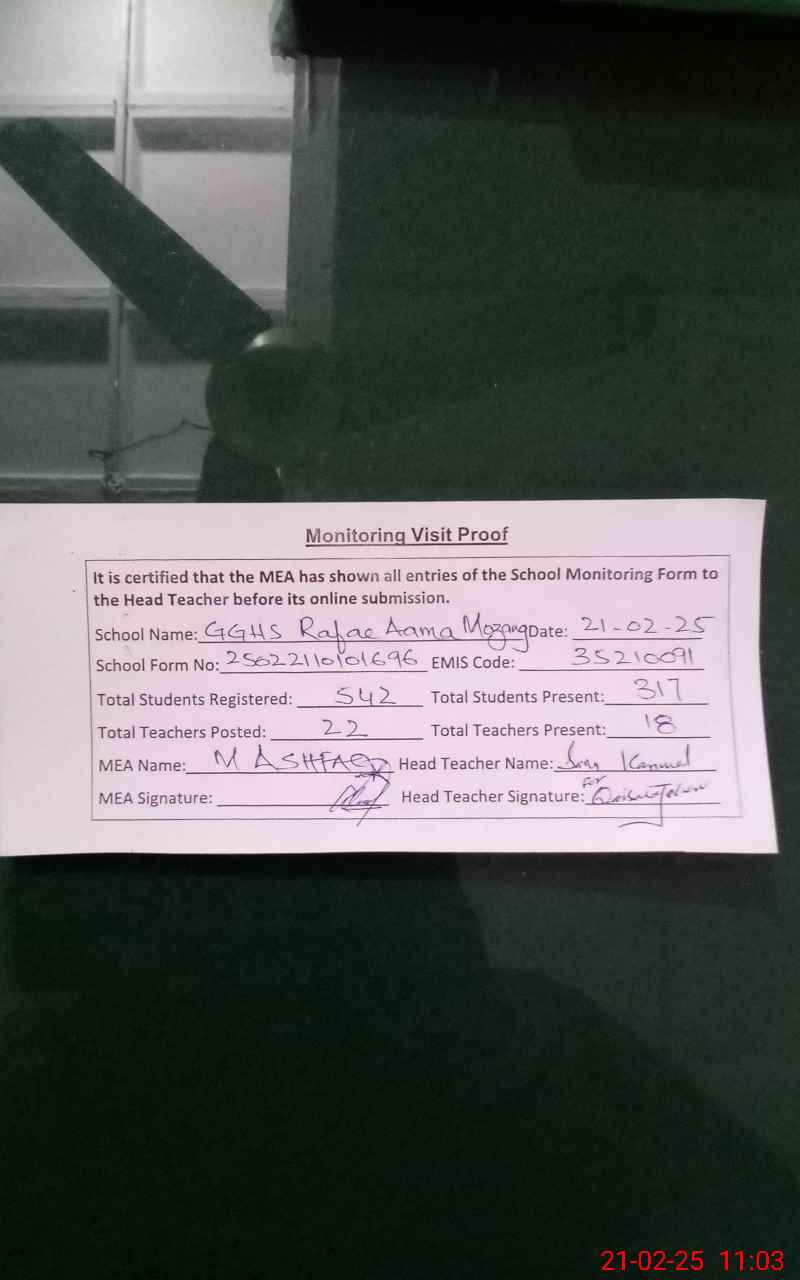 Monitoring Visit Proof
It is certified that the MEA has shown all entries of the School Monitoring Form to
the Head Teacher before its online submission.
School Name: GGHS Rafae Aama Mozang Date: 21-02-25
School Form No: 25022110101696 EMIS Code: 35210091
Total Students Registered: 542 Total Students Present: 317
Total Teachers Posted: 22 Total Teachers Present: 18
MEA Name: M ASHFAQ Head Teacher Name: Kanwal
MEA Signature: Head Teacher Signature: For
21-02-25 11:03